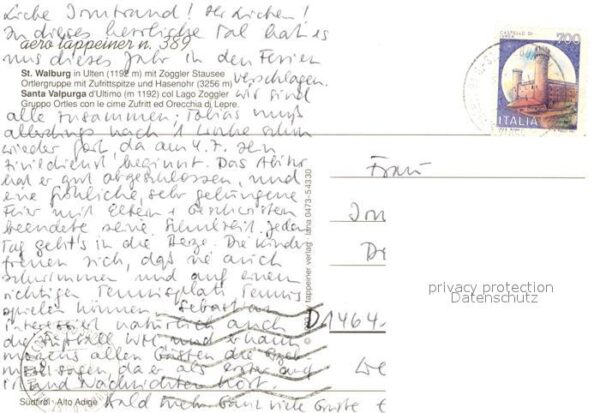 Liebe Irmtraud! Ihr Lieben!
In dieses herrliche Tal hat es
aero tappeiner n. 389
uns dieses Jahr in den Ferien
St. Walburg in Ulten (1192 m) mit Zoggler Stausee
verschlagen.
Ortlergruppe mit Zufrittspitze und Hasenohr (3256 m)
Wir sind
Santa Valpurga d'Ultimo (m 1192) col Lago Zoggler
Gruppo Ortles con le cime Zufritt ed Orecchia di Lepre.
alle zusammen; Tobias muß
allerdings nach 1 Woche schon
wieder fort, da am 4.7. sein
Zivildienst beginnt. Das Abitur
hat er gut abgeschlossen, und
eine fröhliche, sehr gelungene
Feier mit Eltern + Geschwistern
beendete seine Schulzeit. Jeden
Tag geht's in die Berge. Die Kinder
freuen sich, daß sie auch
schwimmen und auf einem
richtigen Tennisplatz Tennis
spielen können. Sebastian
interessiert natürlich auch
die Fußball WM und er kann
morgens allen Gästen die
mitteilen, da er als erster auf
ist und Nachrichten hört.
Bald mehr. Ganz viele Grüße
Südtirol · Alto Adige
tappeiner verlag lana 0473-54330
CASTELLO DI
IVREA
700
ITALIA
Frau
Irm
De
D 1464
privacy protection
Datenschutz